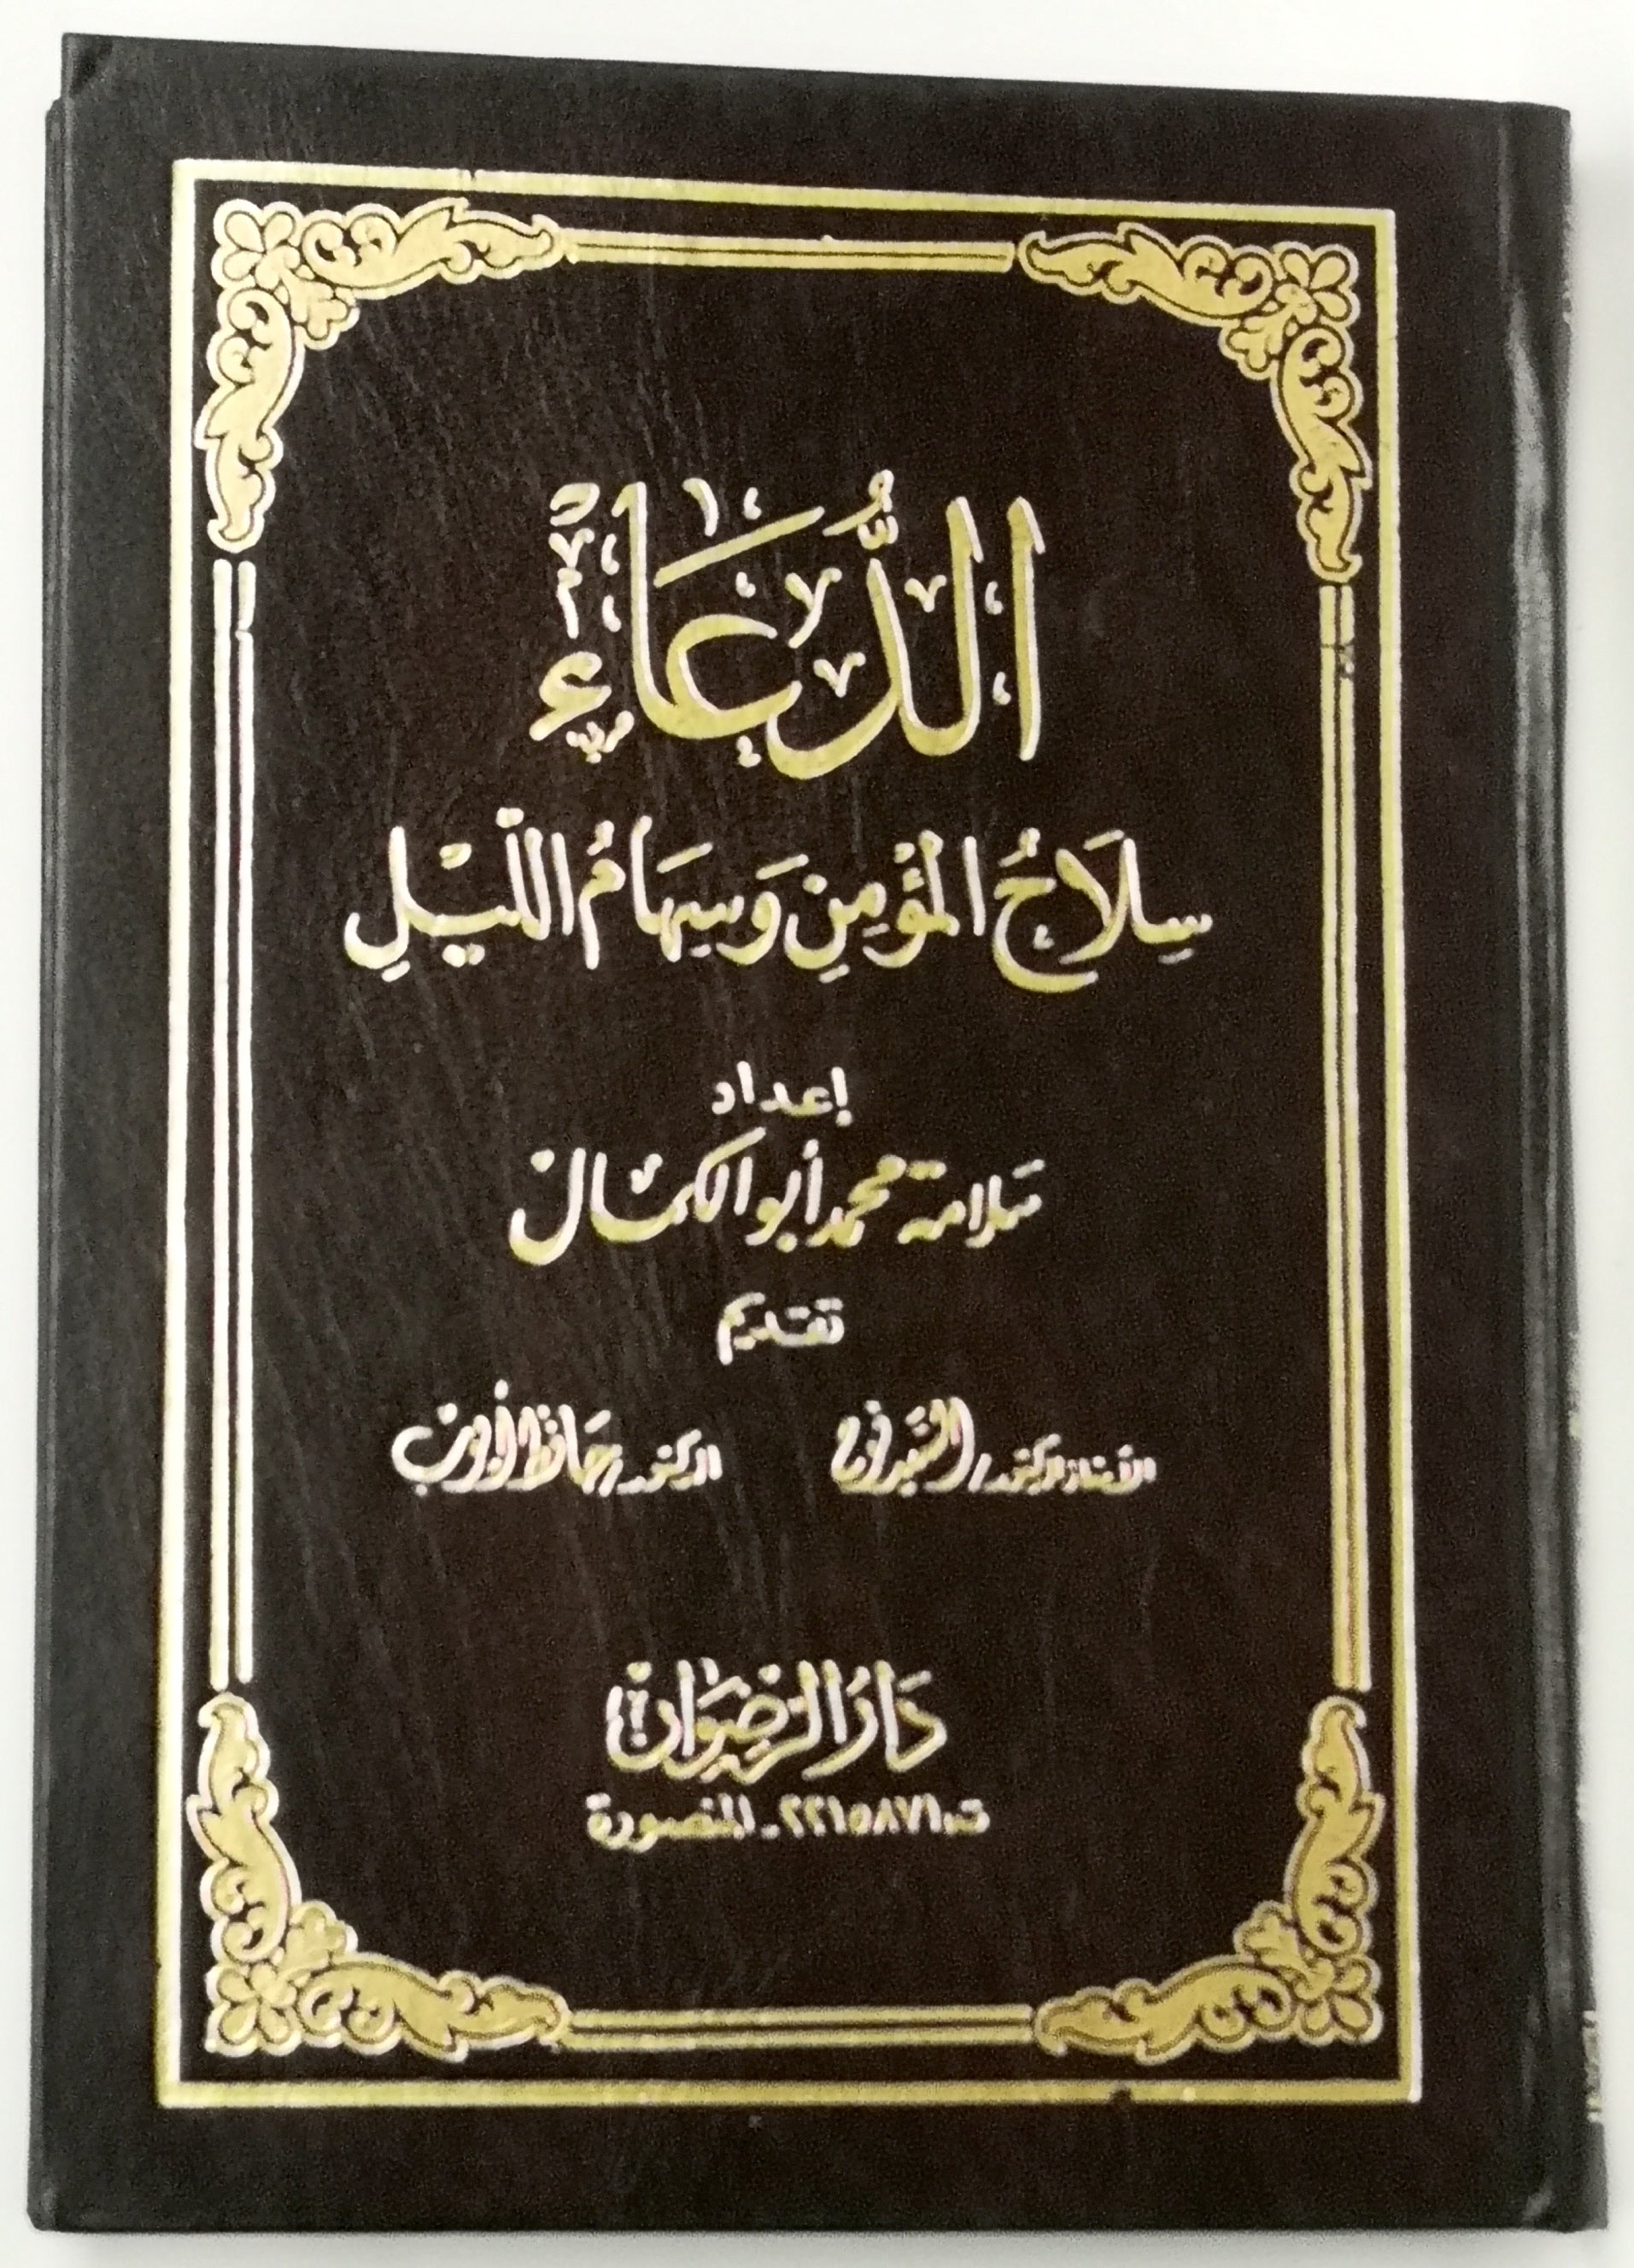 الدُّعَاءُ
سِلَاحُ المُؤْمِنِ وَسِهَامُ اللَّيْلِ
إعداد
سلامة محمد أبو الكمال
تقديم
الأستاذ الدكتور/ السيد نوح الدكتور/
دَارُ الرِّضْوَان
ت: ٢٢١٥٨٧١ - المنصورة